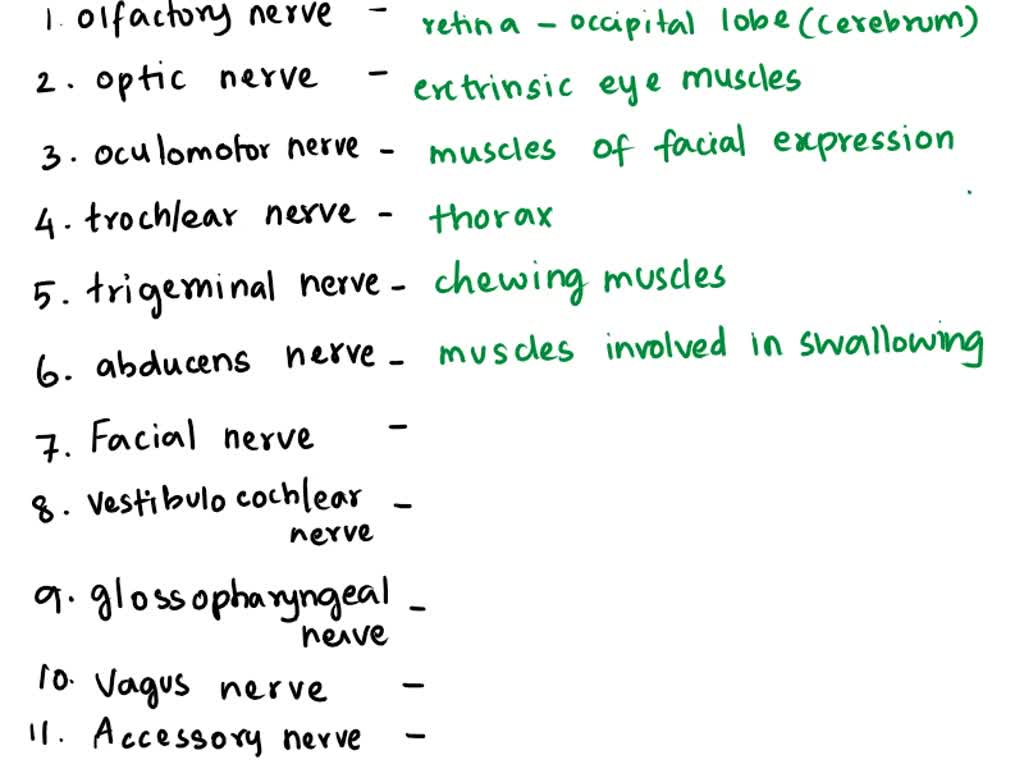 1. olfactory nerve - retina - occipital lobe (cerebrum)
2. optic nerve - exctrinsic eye muscles
3. oculomotor nerve - muscles of facial expression
4. trochlear nerve - thorax
5. trigeminal nerve - chewing muscles
6. abducens nerve - muscles involved in swallowing
7. Facial nerve -
8. vestibulo cochlear -
nerve
9. glossopharyngeal -
nerve
10. Vagus nerve -
11. Accessory nerve -